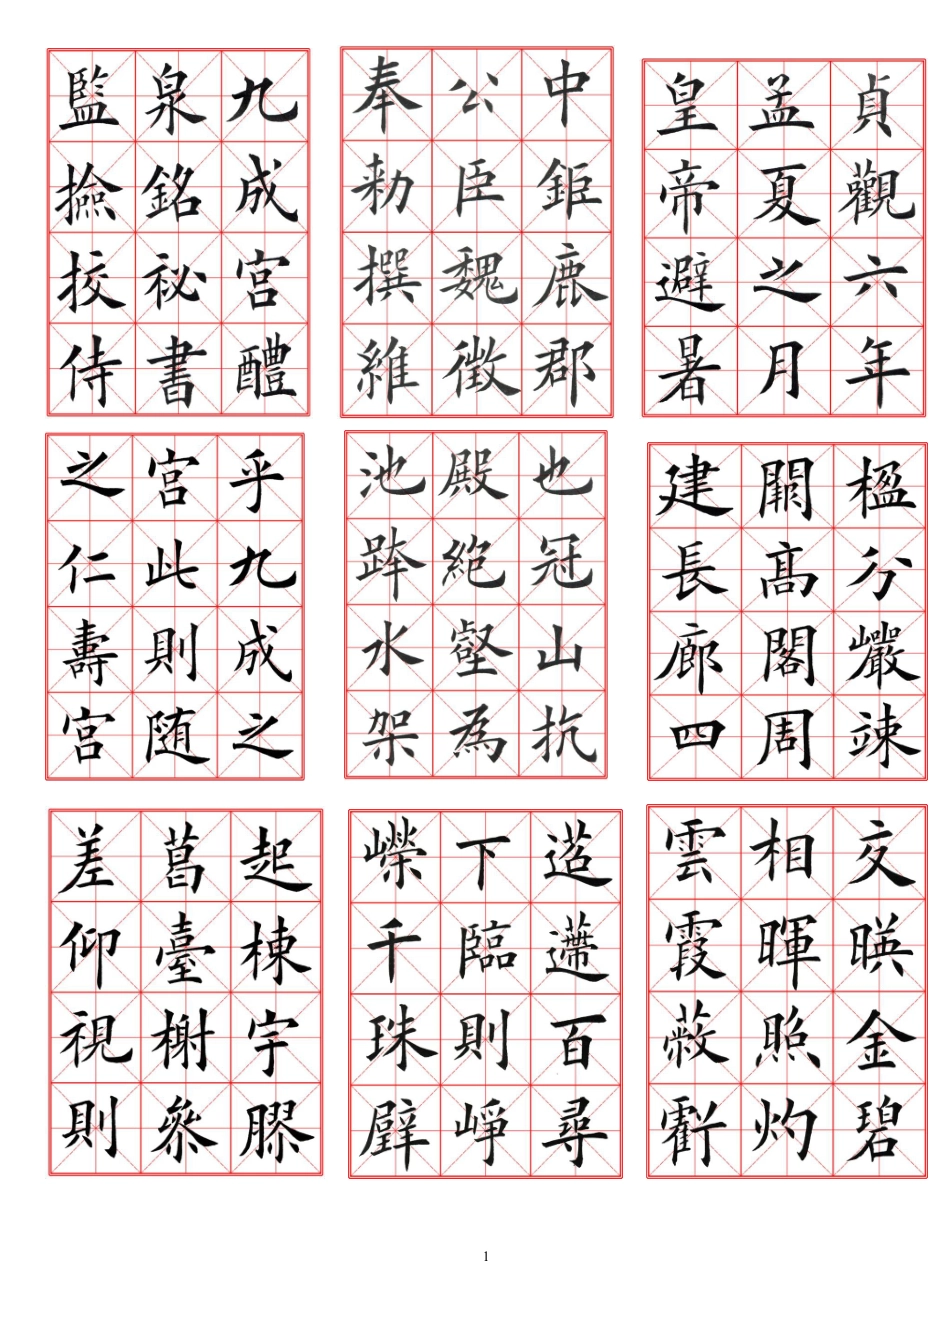 九成宮醴
泉銘秘書
監撿挍侍
中鉅鹿郡
公臣魏徵
奉勑撰維
貞觀六年
孟夏之月
皇帝避暑
乎九成之
宮此則随
之仁壽宮
也冠山抗
殿絶壑為
池跨水架
楹分巖竦
闕髙閣周
建長廊四
起棟宇膠
葛臺榭參
差仰視則
迢遰百尋
下臨則崢
嶸千珠壁
交暎金碧
相暉照灼
雲霞蔽虧
1